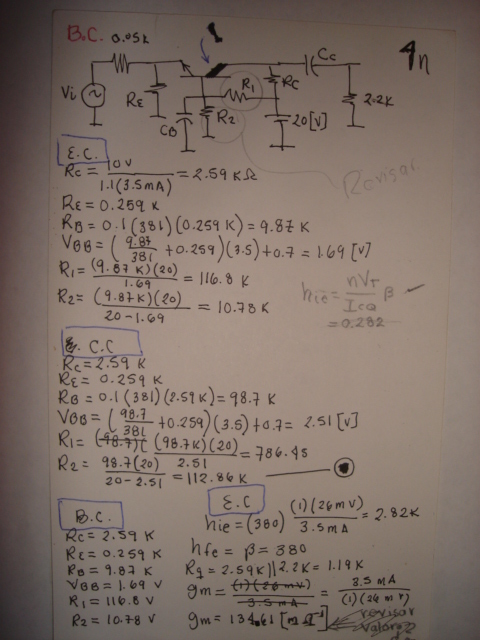 B.C.
0.05K
4n
Cc
Vi
RE
CB
R2
R1
RC
20[V]
2.2K
E.C.
Rc = 10V / 1.1(3.5mA) = 2.59 KΩ
Revisar
RE = 0.259 K
RB = 0.1(381)(0.259 K) = 9.87 K
VBB = (9.87/381 + 0.259)(3.5) + 0.7 = 1.69 [V]
R1 = (9.87 K)(20) / 1.69 = 116.8 K
R2 = (9.87K)(20) / 20-1.69 = 10.78 K
hie = nVT / ICQ β
= 0.282
C.C
Rc = 2.59 K
RE = 0.259 K
RB = 0.1(381)(2.59 K) = 98.7 K
VBB = (98.7/381 + 0.259)(3.5) + 0.7 = 2.51 [V]
R1 = (98.7)( (98.7K)(20) / 2.51 = 786.45
R2 = 98.7(20) / 20-2.51 = 112.86 K
B.C.
Rc = 2.59 K
RE = 0.259 K
RB = 9.87 K
VBB = 1.69 V
R1 = 116.8 V
R2 = 10.78 V
E.C
hie = (380) (1)(26mV) / 3.5mA = 2.82K
hfe = β = 380
= 2.59K||2.2K = 1.19 K
gm = (1)(26 mV) / 3.5 mA = 3.5 mA / (1)(26 mV)
gm = 134.61
revisar
valores